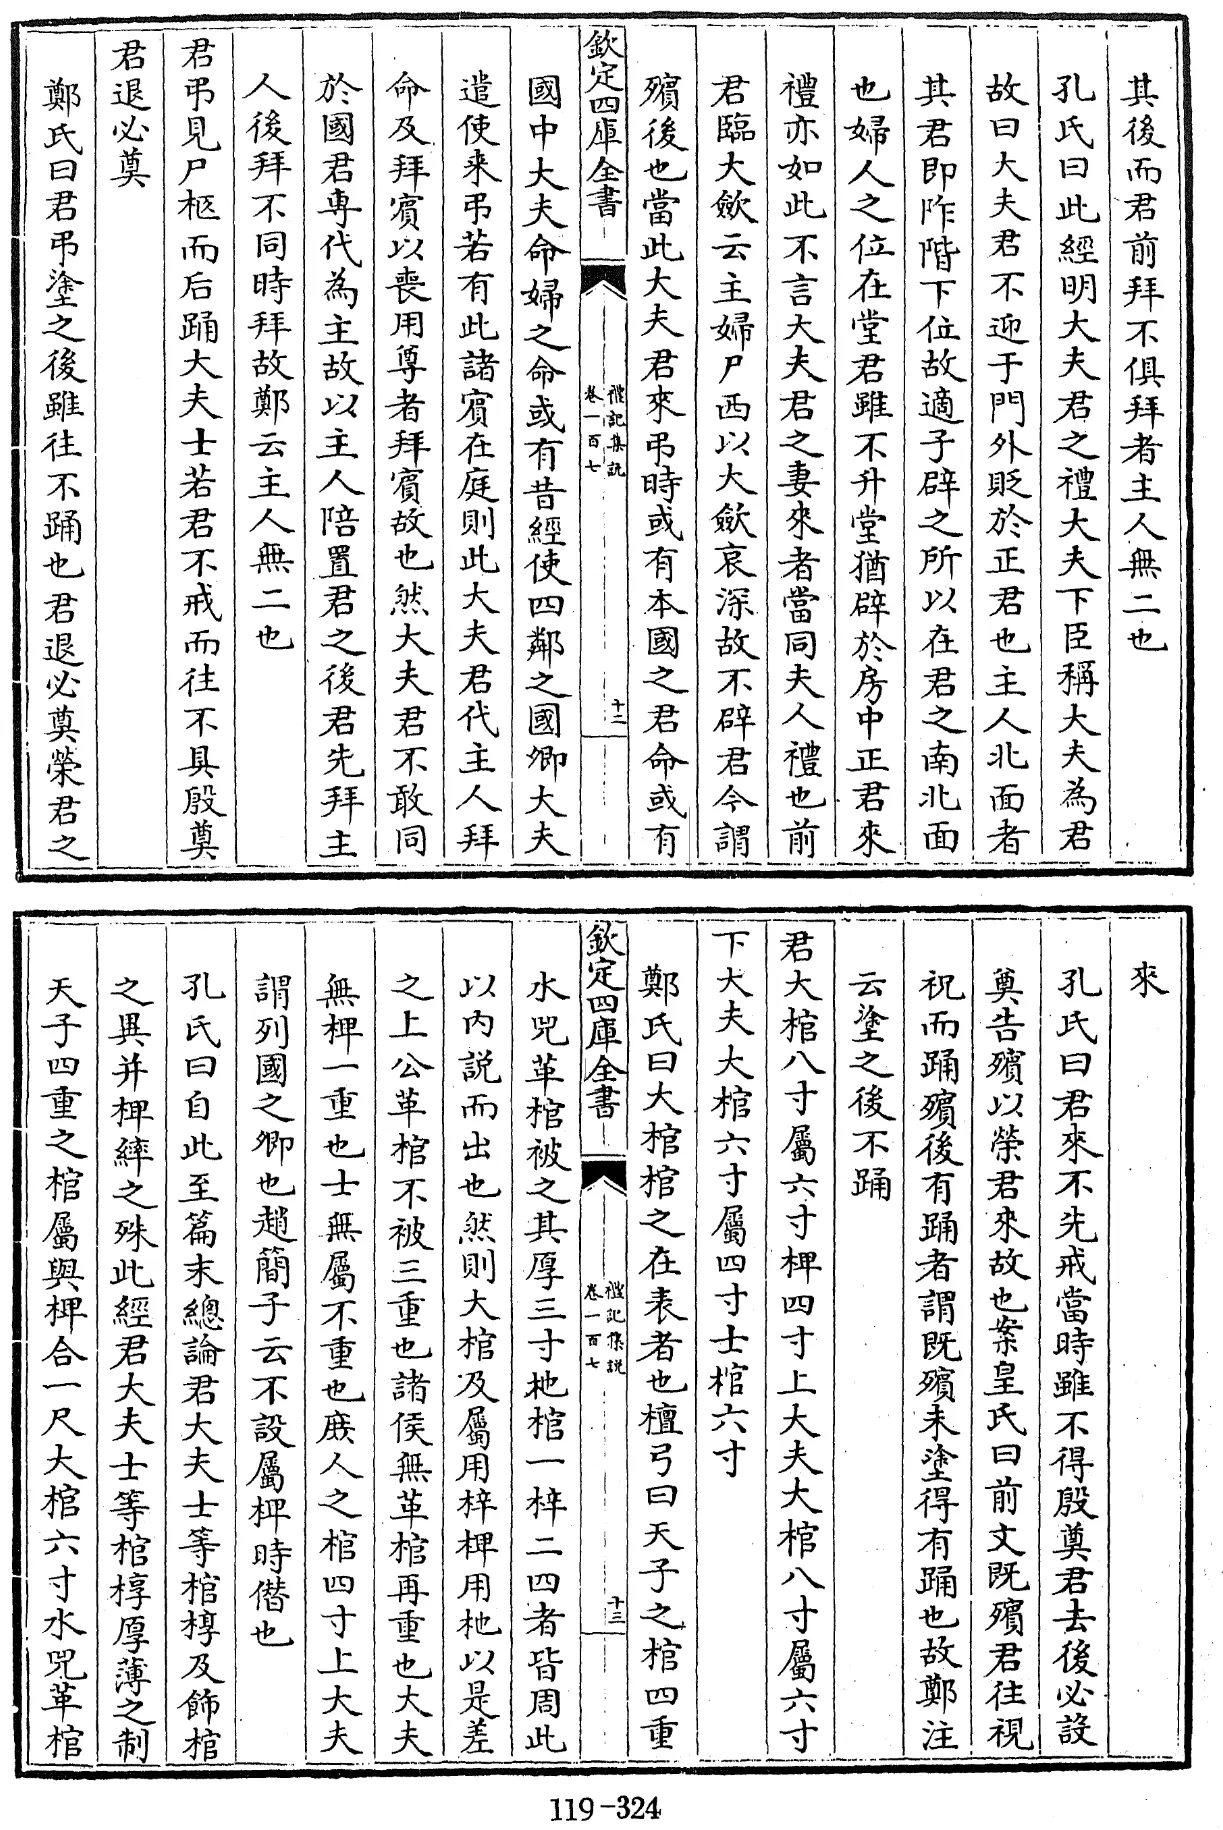 其後而君前拜不俱拜者主人無二也
孔氏曰此經明大夫君之禮大夫下臣稱大夫為君
故曰大夫君不迎于門外貶於正君也主人北面者
其君即阼階下位故適子辟之所以在君之南北面
也婦人之位在堂君雖不升堂猶辟於房中正君來
禮亦如此不言大夫君之妻來者當同夫人禮也前
君臨大斂云主婦尸西以大斂哀深故不辟君今謂
殯後也當此大夫君來弔時或有本國之君命或有
欽定四庫全書
禮記集說
卷一百七
十二
國中大夫命婦之命或有昔經使四鄰之國卿大夫
遣使来弔若有此諸賔在庭則此大夫君代主人拜
命及拜賔以喪用尊者拜賔故也然大夫君不敢同
於國君專代為主故以主人陪置君之後君先拜主
人後拜不同時拜故鄭云主人無二也
君弔見尸柩而后踊大夫士若君不戒而往不具殷奠
君退必奠
鄭氏曰君弔塗之後雖往不踊也君退必奠榮君之
來
孔氏曰君來不先戒當時雖不得殷奠君去後必設
奠告殯以榮君來故也案皇氏曰前文既殯君往視
祝而踊殯後有踊者謂既殯未塗得有踊也故鄭注
云塗之後不踊
君大棺八寸屬六寸椑四寸上大夫大棺八寸屬六寸
下大夫大棺六寸屬四寸士棺六寸
鄭氏曰大棺棺之在表者也檀弓曰天子之棺四重
欽定四庫全書
禮記集說
卷一百七
十三
水兕革棺被之其厚三寸杝棺一梓二四者皆周此
以内説而出也然則大棺及屬用梓椑用杝以是差
之上公革棺不被三重也諸侯無革棺再重也大夫
無椑一重也士無屬不重也庶人之棺四寸上大夫
謂列國之卿也趙簡子云不設屬椑時僭也
孔氏曰自此至篇末總論君大夫士等棺椁及飾棺
之異并椑繂之殊此經君大夫士等棺椁厚薄之制
天子四重之棺屬與椑合一尺大棺六寸水兕革棺
119-324